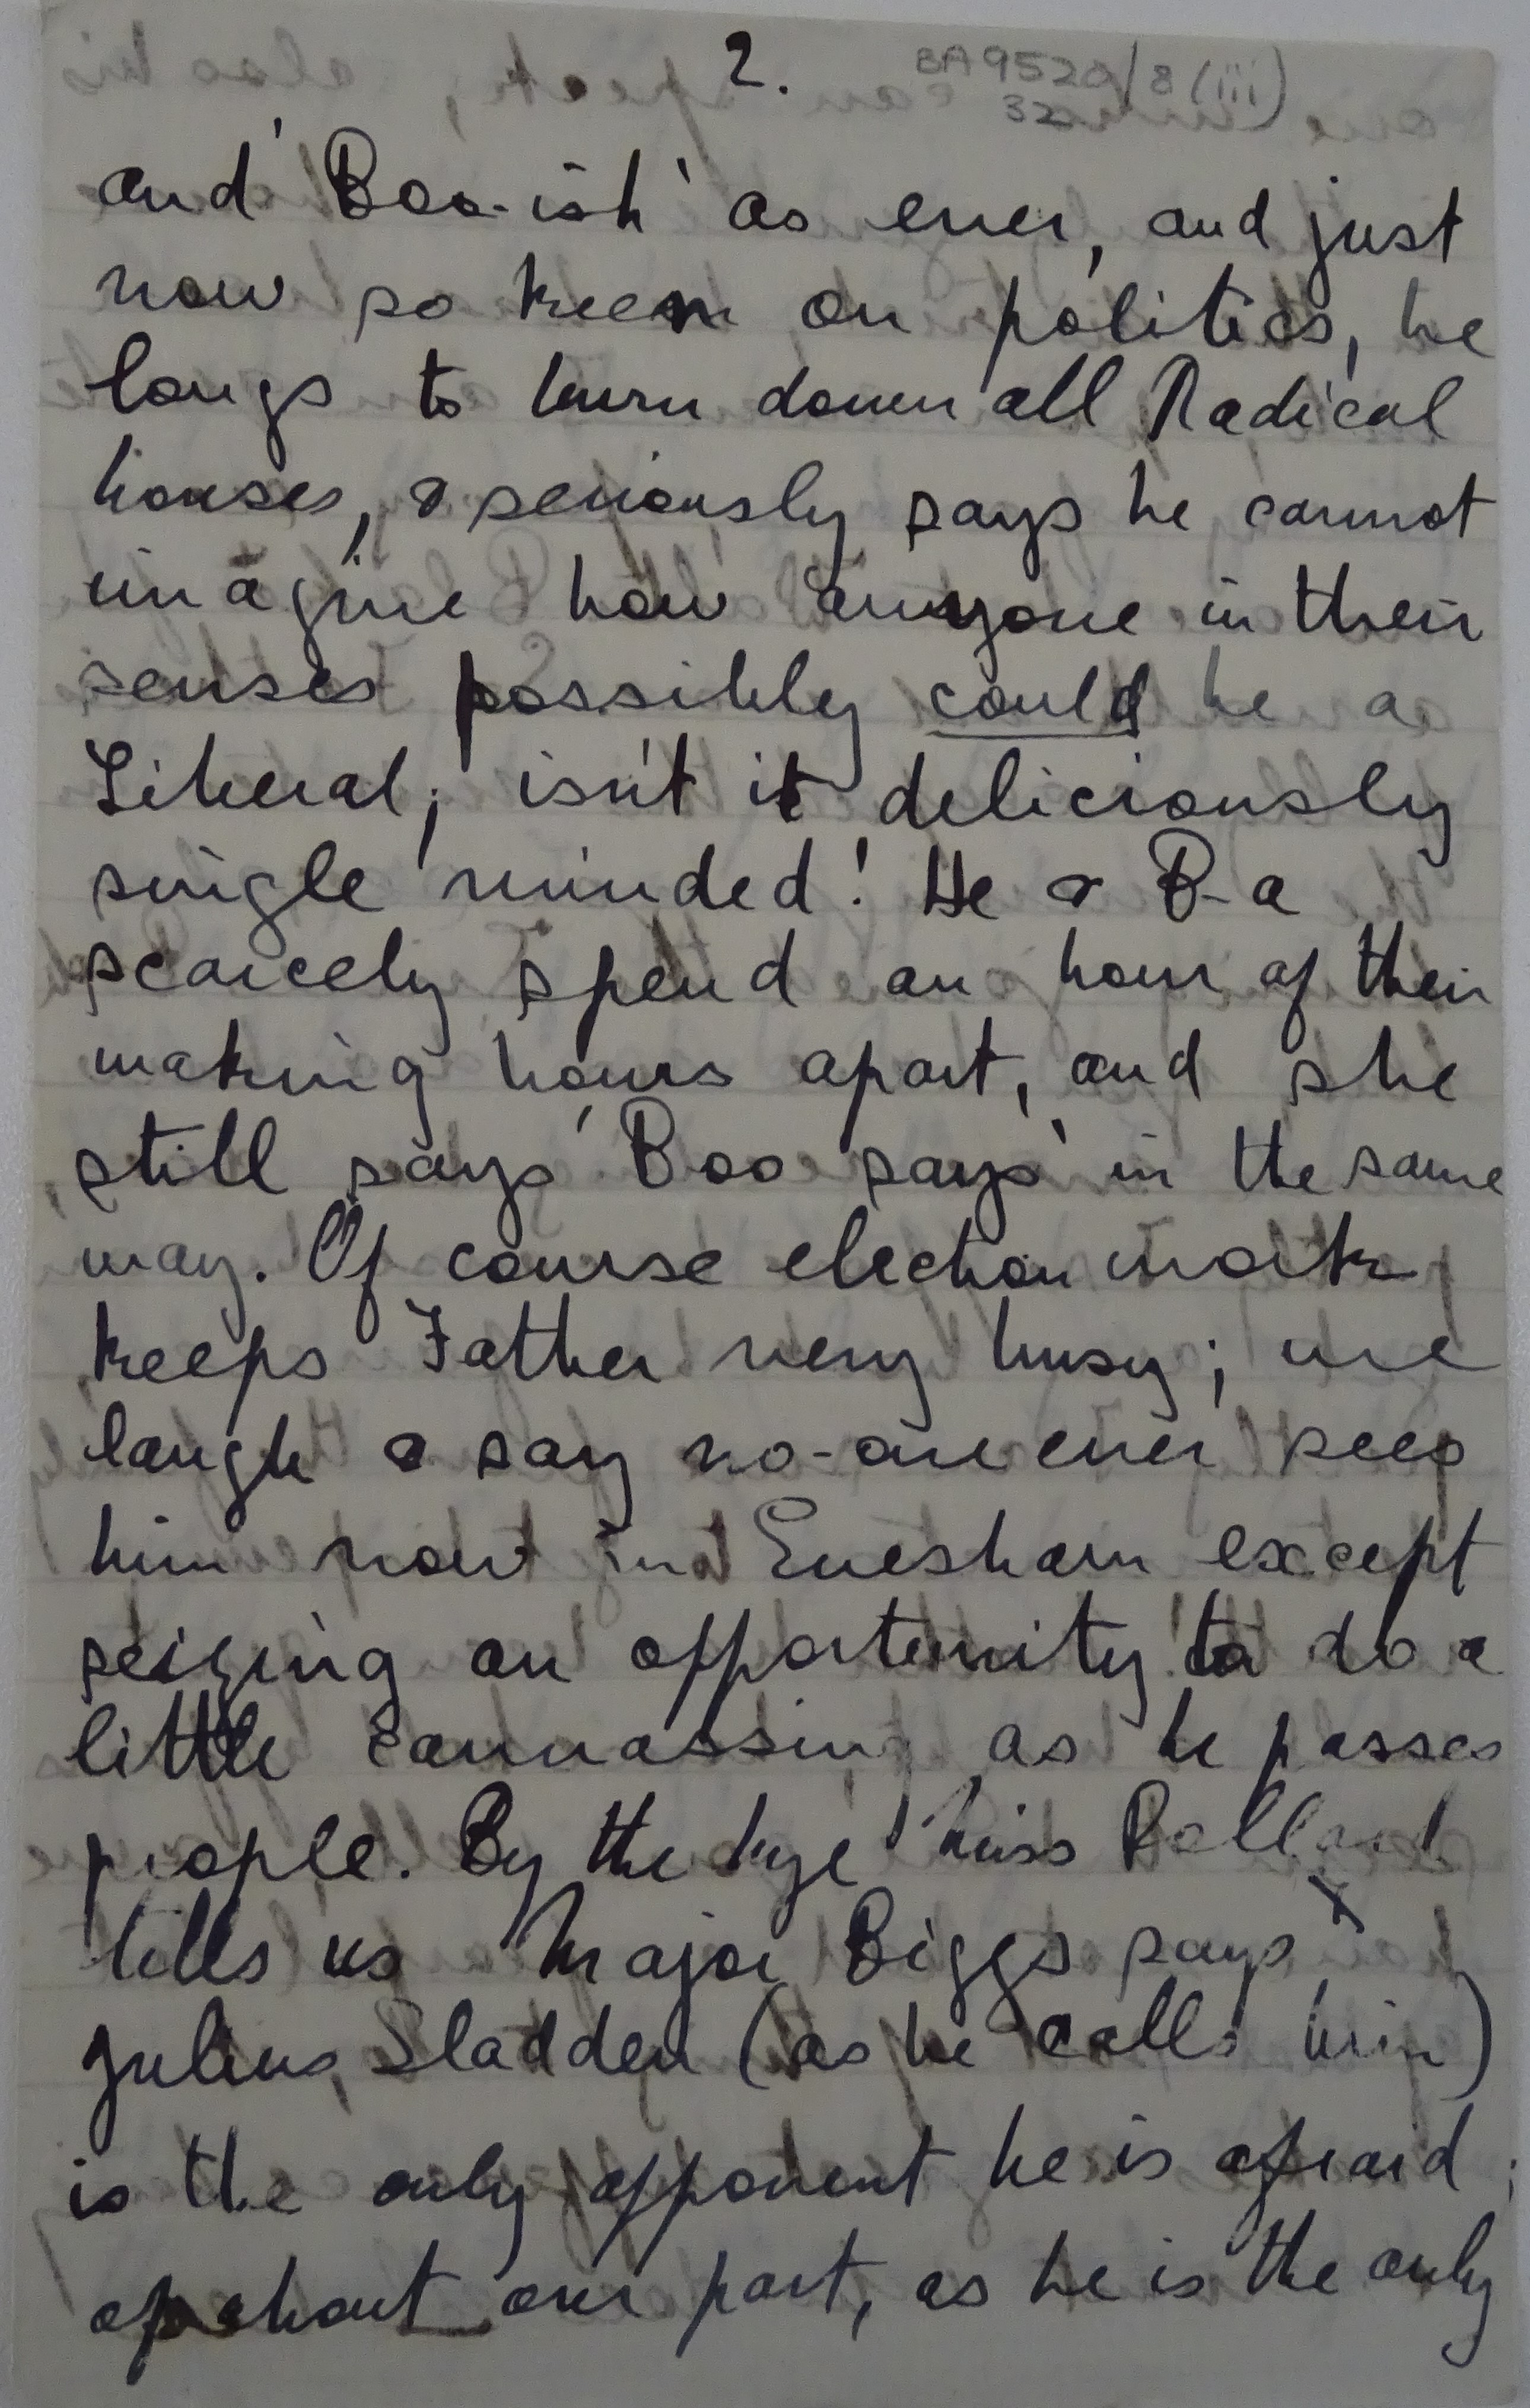 2.
BA9520/8(iii)
32
and 'Boo-ish' as ever, and just
now so keen on politics, he
longs to burn down all Radical
houses, & seriously says he cannot
imagine how anyone in their
senses possibly could be a
Liberal; isn't it deliciously
single minded! He & B-a
scarcely spend an hour of their
waking hours apart, and she
still says 'Boo says' in the same
way. Of course election work
keeps Father very busy; we
laugh & say no-one ever sees
him now in Evesham except
seizing an opportunity to do a
little canvassing as he passes
people. By the bye Miss
tells us Major Biggs says x
Julius Sladden (as he calls him)
is the only opponent he is afraid
of about our part, as he is the only